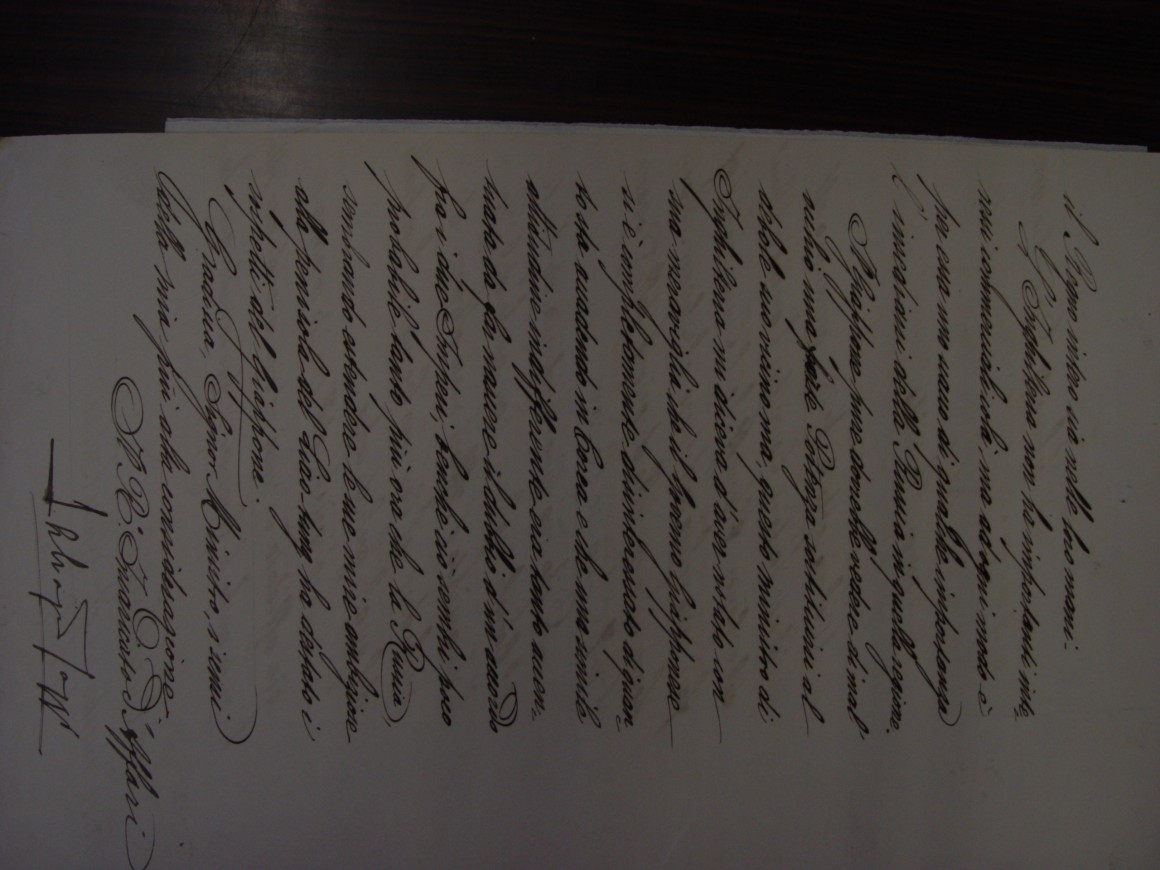 il Regno intero sia nelle loro mani.
L'Inghilterra non ha importanti inte-
ressi commerciali, ma ad ogni modo è
per essa una causa di qualche importanza
l'incursioni della Russia in quelle regione.
Il Giappone pure dovrebbe vedere di mal
occhio una forte Potenza sostituirsi al
debole suo vicino ma, questo ministro di
Inghilterra mi diceva d'aver notato con
sua maraviglia che il governo Giapponese
si è completamente disinteressato di quan-
to sta accadendo in Corea e che una simile
attitudine indifferente sia tanto accen-
tuata da far nascere il dubbio d'un accordo
fra i due Imperi, benchè ciò sembri poco
probabile tanto più ora che la Russia,
sembrando estendere le sue mire ambiziose
alla penisola del Liao-tung ha destato i
sospetti del Giappone.
Gradisca, Signor Ministro, i sensi
della mia più alta considerazione
Il R. Incaricato D'Affari